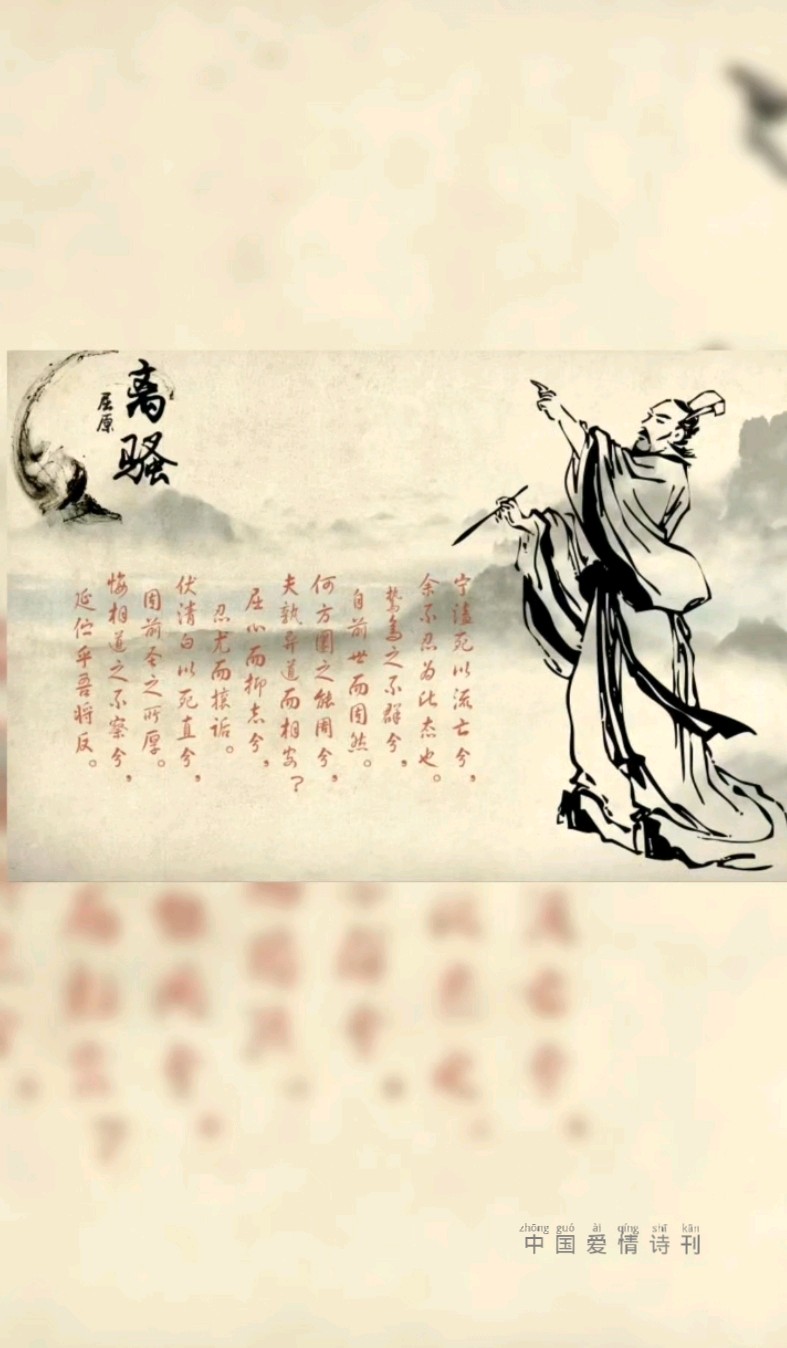 离骚
屈原
宁溘死以流亡兮，
余不忍为此态也。
鸷鸟之不群兮，
自前世而固然。
何方圜之能周兮，
夫孰异道而相安？
屈心而抑志兮，
忍尤而攘诟。
伏清白以死直兮，
固前圣之所厚。
悔相道之不察兮，
延伫乎吾将反。
zhōng guó ài qíng shī kān
中国爱情诗刊